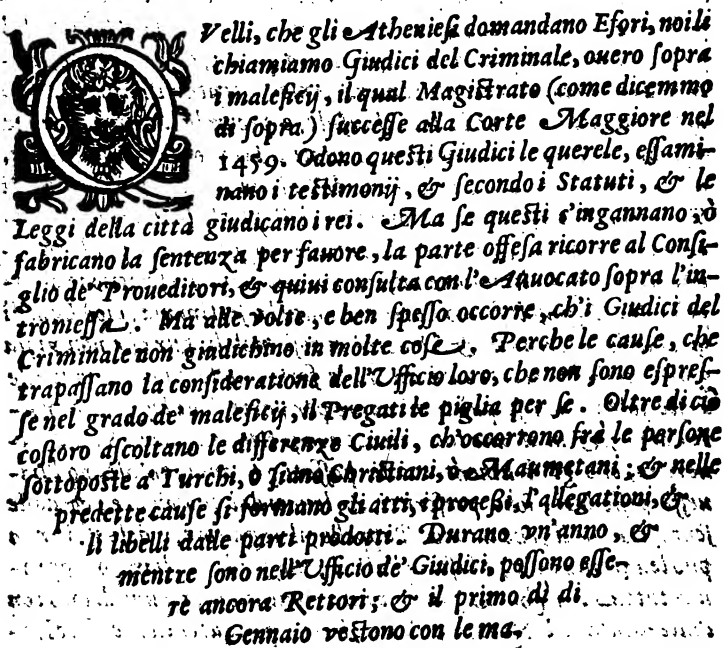 QVelli, che gli Atheniesi domandano Efori, noi li
chiamiamo Giudici del Criminale, ouero sopra
i maleficij, il qual Magistrato (come dicemmo
di sopra) successe alla Corte Maggiore nel
1459. Odono questi Giudici le querele, essami-
nano i testimonij, & secondo i Statuti, & le
Leggi della città giudicano i rei. Ma se questi s'ingannano, ò
fabricano la sentenza per fauore, la parte offesa ricorre al Consi-
glio de' Proueditori, & quiui consulta con l'Auuocato sopra l'in-
tromessa. Ma alle volte, e ben spesso occorre, ch'i Giudici del
Criminale non giudichino in molte cose. Perche le cause, che
trapassano la consideratione dell'Vfficio loro, che non sono espres-
se nel grado de' maleficij, il Pregati le piglia per se. Oltre di ciò
costoro ascoltano le differenze Ciuili, ch'occorrono frà le persone
sottoposte a' Turchi, ò siano Christiani, ò Maumetani; & nelle
predette cause si formano gli atti, i processi, l'allegationi, &
li libelli dalle parti prodotti. Durano vn'anno, &
mentre sono nell'Vfficio de' Giudici, possono esse-
re ancora Rettori; & il primo dì di
Gennaio vestono con le ma-